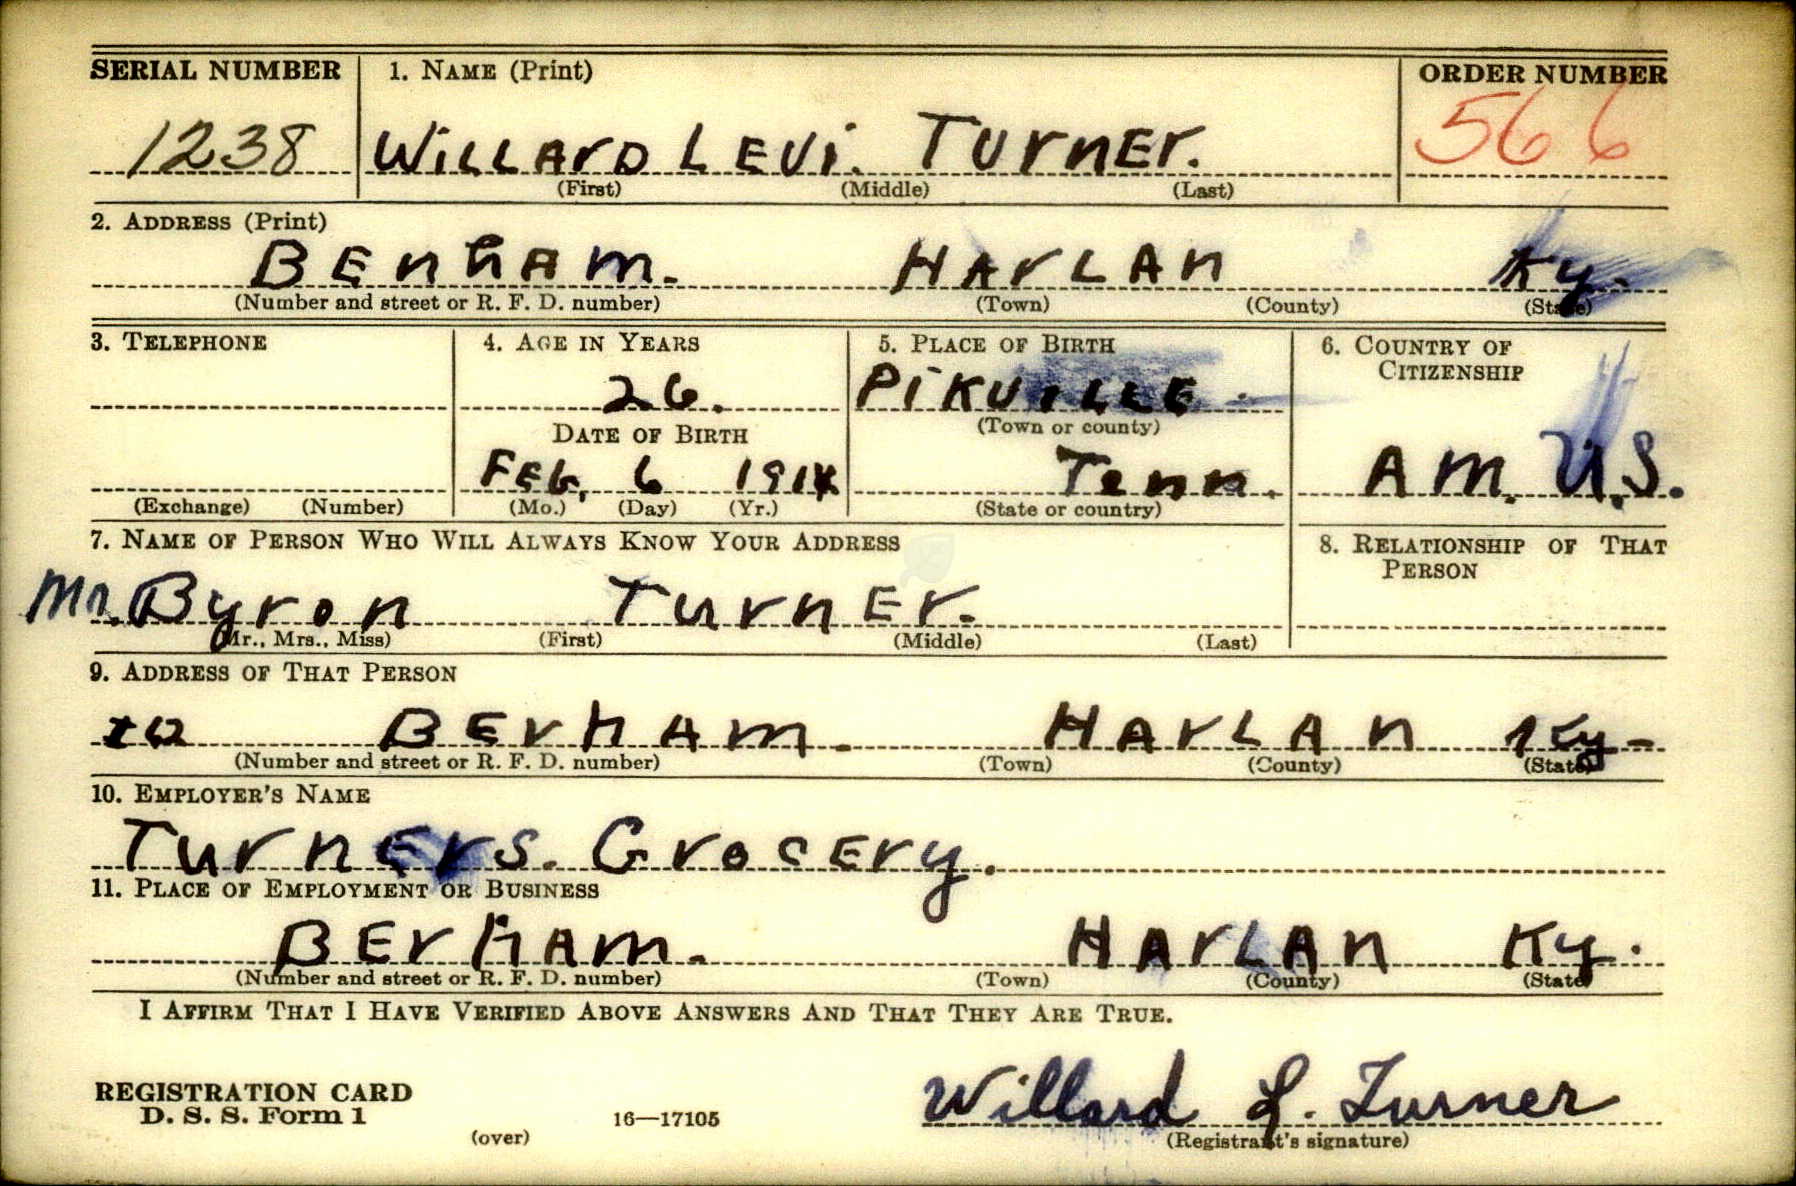 SERIAL NUMBER 1. NAME (Print) ORDER NUMBER
1238 WILLARD LEVI. TURNER. 566
(First) (Middle) (Last)
2. ADDRESS (Print)
BENHAM. HARLAN Ky.
(Number and street or R. F. D. number) (Town) (County) (State)
3. TELEPHONE 4. AGE IN YEARS 5. PLACE OF BIRTH 6. COUNTRY OF CITIZENSHIP
26. PIKVILLE.
DATE OF BIRTH (Town or county)
FEB, 6 1914 Tenn. AM. U.S.
(Exchange) (Number) (Mo.) (Day) (Yr.) (State or country)
7. NAME OF PERSON WHO WILL ALWAYS KNOW YOUR ADDRESS 8. RELATIONSHIP OF THAT PERSON
Mr. Byron TurnEr.
(Mr., Mrs., Miss) (First) (Middle) (Last)
9. ADDRESS OF THAT PERSON
BEnHAM. HARLAN Ky-
(Number and street or R. F. D. number) (Town) (County) (State)
10. EMPLOYER'S NAME
Turners. Grocery.
11. PLACE OF EMPLOYMENT OR BUSINESS
BEnHAM. HARLAN Ky.
(Number and street or R. F. D. number) (Town) (County) (State)
I AFFIRM THAT I HAVE VERIFIED ABOVE ANSWERS AND THAT THEY ARE TRUE.
REGISTRATION CARD
D. S. S. Form 1 16—17105 Willard L. Turner
(over) (Registrant's signature)